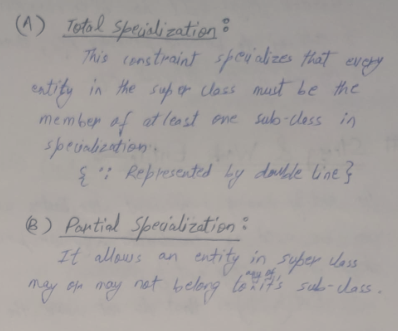 (A) Total Specialization:
This constraint specializes that every
entity in the super class must be the
member of at least one sub-class in
specialization.
{ ∵ Represented by double line}
(B) Partial Specialization:
It allows an entity in super class
may or may not belong to any of it's sub-class.